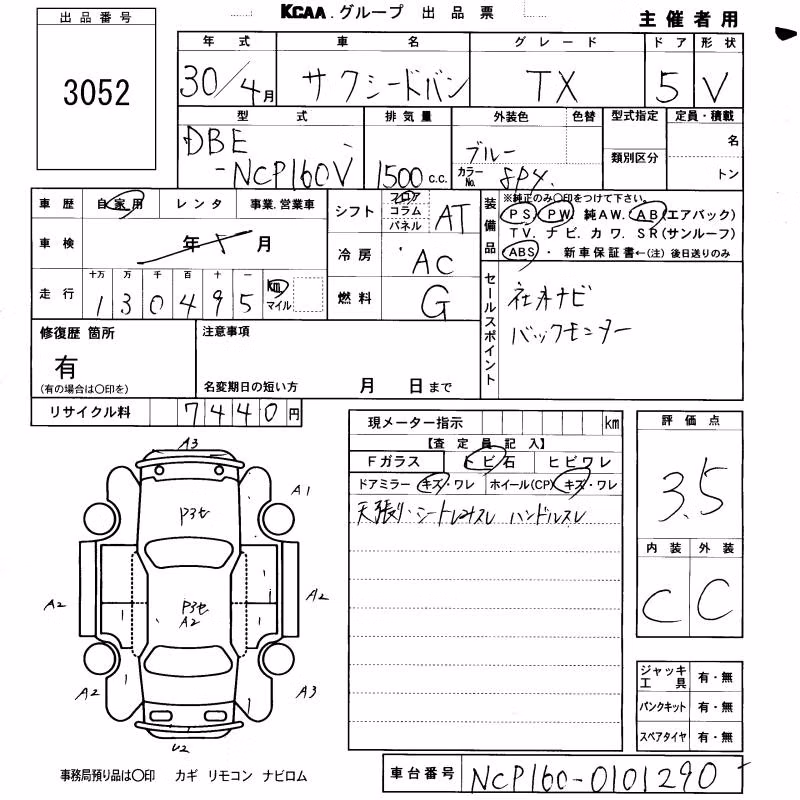 KCAA.グループ 出品票
主催者用
出品番号
3052
年式 車名 グレード ドア 形状
30/4月 サクシードバン TX 5 V
型式 排気量 外装色 色替 型式指定 定員・積載
DBE ブルー 名
-NCP160V 1500c.c. カラーNo. 8P4. 類別区分 トン
車歴 自家用 レンタ 事業.営業車
シフト フロア コラム パネル AT
装備品 ※純正のみ〇印をつけて下さい。
PS PW 純AW. AB(エアバック)
TV. ナビ. カワ. SR(サンルーフ)
ABS ・ 新車保証書←(注) 後日送りのみ
車検 年 月
冷房 AC
走行 十万 万 千 百 十 一
130495 km マイル
燃料 G
セールスポイント
社外ナビ
バックモニター
修復歴 箇所
有
(有の場合は〇印を)
注意事項
名変期日の短い方 月 日まで
リサイクル料 7440円
現メーター指示 km
【査定員記入】
Fガラス トビ石 ヒビワレ
ドアミラー キズ・ワレ ホイール(CP) キズ・ワレ
天張り・シート ハンドルスレ
評価点
3.5
内装 外装
C C
A3
A1
P3セ
A2
P3セ
A2
A2
A2
A3
U2
ジャッキ工具 有・無
パンクキット 有・無
スペアタイヤ 有・無
事務局預り品は〇印 カギ リモコン ナビロム
車台番号 NCP160-0101290